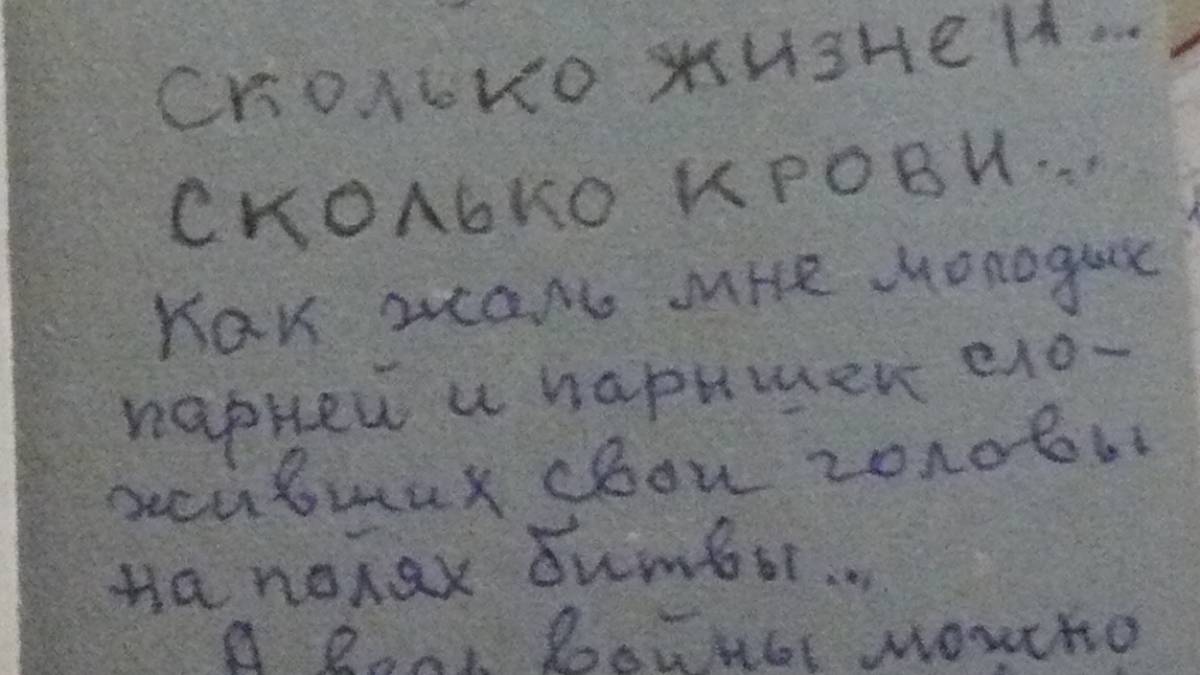 Сколько жизней...
Сколько крови...
Как жаль мне молодых
парней и парнишек сло-
живших свои головы
на полях битвы...
А ведь войны можно